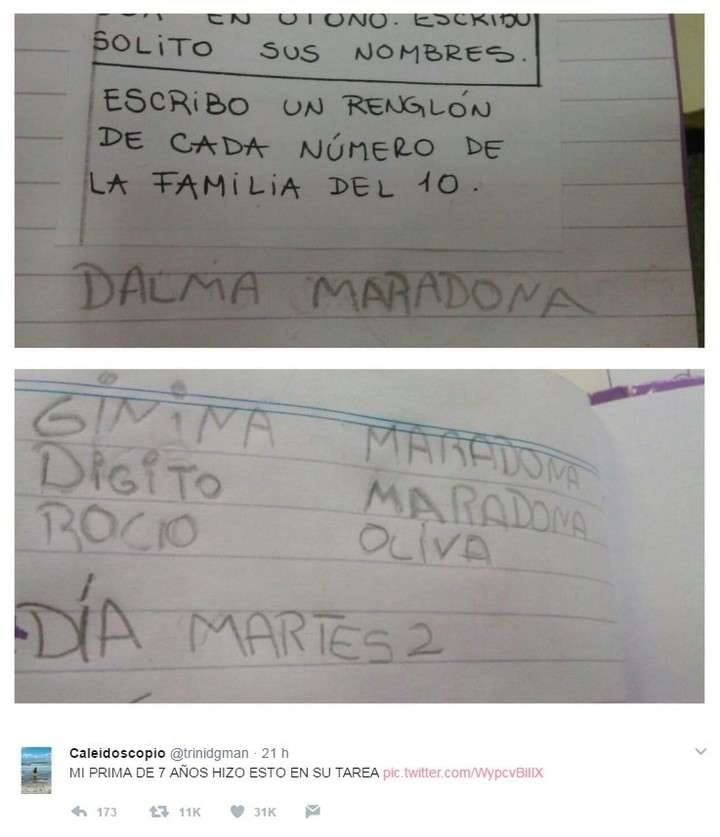 EN OTOÑO. ESCRIBO
SOLITO SUS NOMBRES.
ESCRIBO UN RENGLÓN
DE CADA NÚMERO DE
LA FAMILIA DEL 10.
DALMA MARADONA
GININA MARADONA
DIGITO MARADONA
ROCIO OLIVA
DÍA MARTES 2
Caleidoscopio @trinidgman · 21 h
MI PRIMA DE 7 AÑOS HIZO ESTO EN SU TAREA pic.twitter.com/WypcvBillX
173 11K 31K